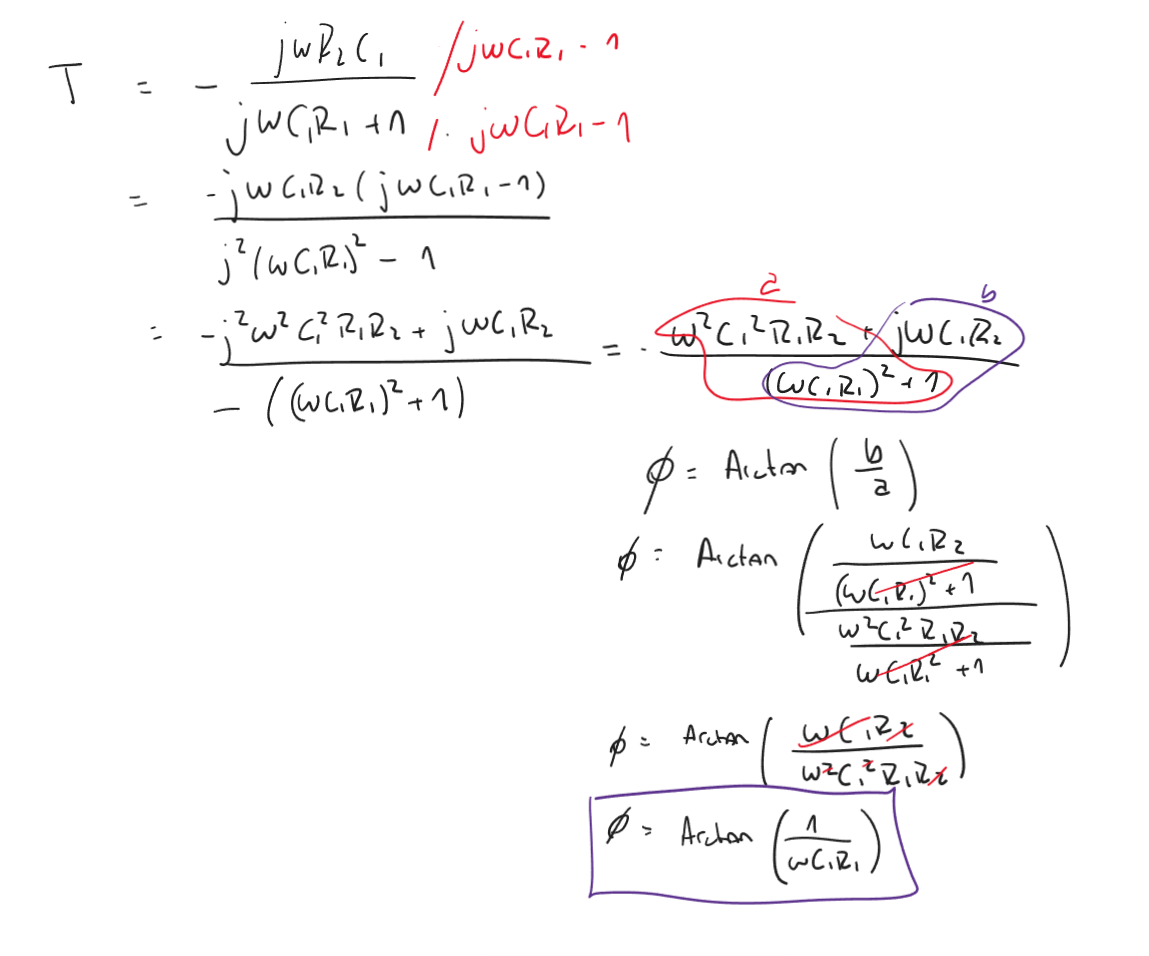 T = - jwR₂C₁ / jwC₁R₁ - 1
jwC₁R₁ + 1 /· jwC₁R₁ - 1
= -jwC₁R₂(jwC₁R₁ - 1)
j²(wC₁R₁)² - 1
a b
= -j²w²C₁²R₁R₂ + jwC₁R₂ = - w²C₁²R₁R₂ + jwC₁R₂
- ((wC₁R₁)² + 1) (wC₁R₁)² + 1
ϕ = Arctan (b
a)
ϕ = Arctan (wC₁R₂
(wC₁R₁)² + 1
w²C₁²R₁R₂
wC₁R₁² + 1)
ϕ = Arctan (wC₁R₂
w²C₁²R₁R₂)
ϕ = Arctan (1
wC₁R₁)